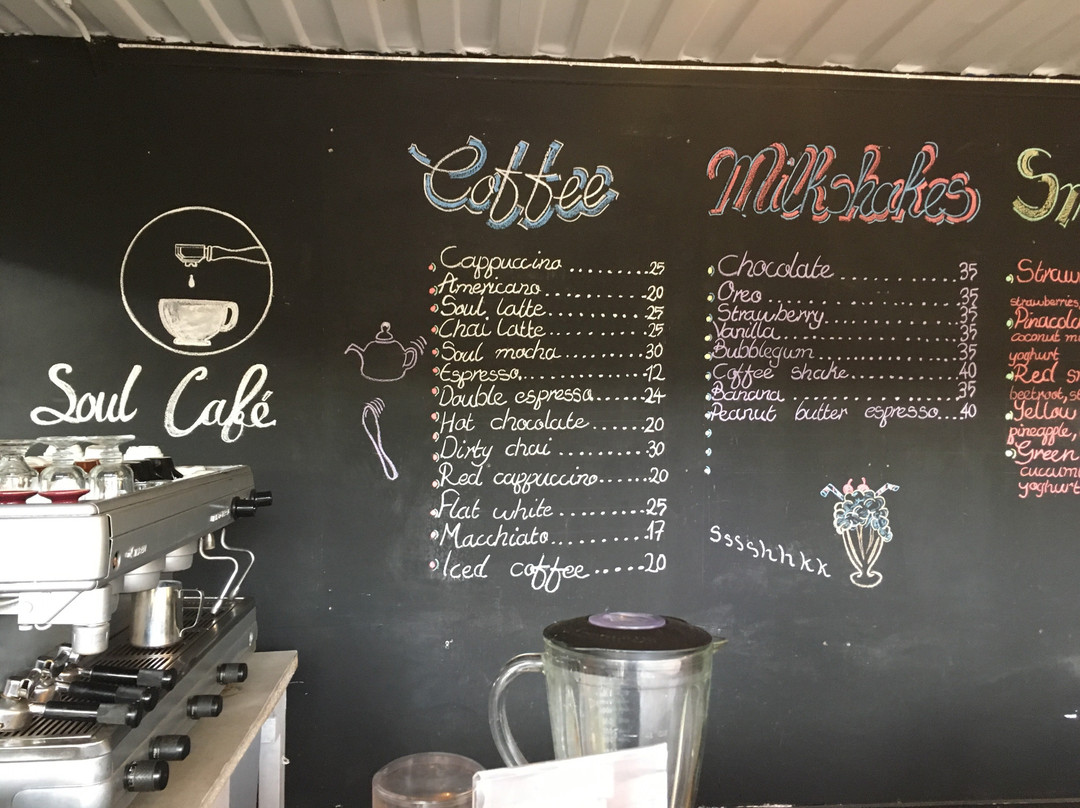 Soul Café
Coffee
Cappuccino..........25
Americano...........20
Soul latte..........25
Chai latte..........25
Soul mocha........30
Espresso............12
Double espresso.....24
Hot chocolate.......20
Dirty chai ........30
Red cappuccino.....20
Flat white ........25
Macchiato..........17
Iced coffee.....20
Milkshakes
Chocolate ............35
Oreo ....................35
Strawberry.............35
Vanilla...................35
Bubblegum............35
Coffee shake...........40
Banana................35
Peanut butter espresso...40
Sssshhkk
Sm
Straw
strawberries
Pinacola
coconut m
yoghurt
Red sm
beetroot, st
Yellow
pineapple,
Green
cucum
yoghurt